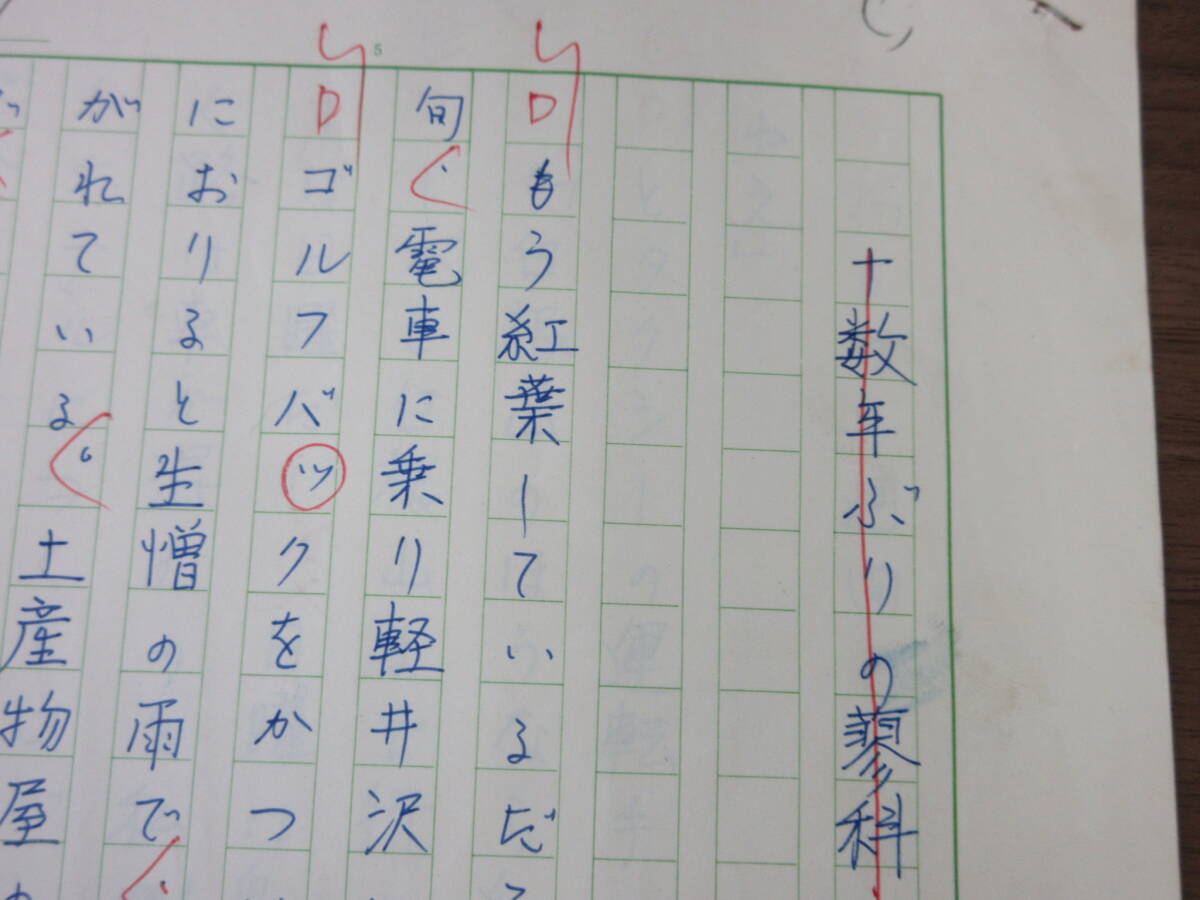 十数年ぶりの蓼科
もう紅葉しているだろ
旬、電車に乗り軽井沢
ゴルフバックをかつ
におりると生憎の雨で、
がれている。土産物屋の
5